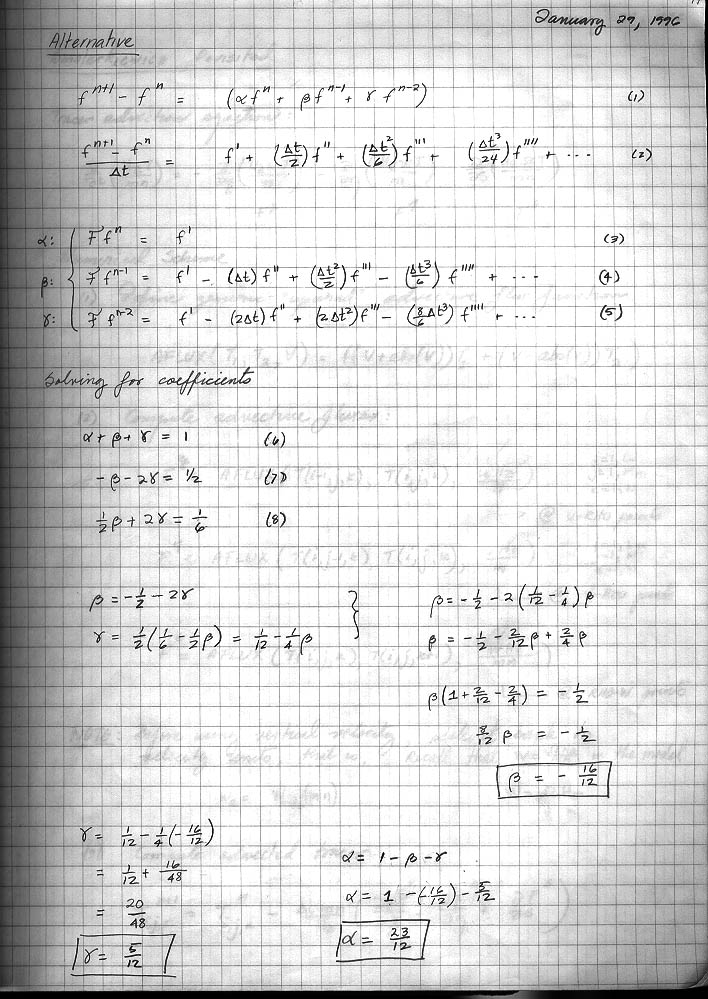 January 29, 1996
Alternative
f^{n+1} - f^n = (αf^n + βf^{n-1} + γf^{n-2}) (1)
\frac{f^{n+1} - f^n}{Δt} = f' + (\frac{Δt}{2}) f'' + (\frac{Δt^2}{6}) f''' + (\frac{Δt^3}{24}) f'''' + ... (2)
α: F f^n = f' (3)
β: F f^{n-1} = f' - (Δt) f'' + (\frac{Δt^2}{2}) f''' - (\frac{Δt^3}{6}) f'''' + ... (4)
γ: F f^{n-2} = f' - (2Δt) f'' + (2Δt^2) f''' - (\frac{8}{6}Δt^3) f'''' + ... (5)
Solving for coefficients
α + β + γ = 1 (6)
-β - 2γ = 1/2 (7)
\frac{1}{2}β + 2γ = \frac{1}{6} (8)
β = -\frac{1}{2} - 2γ
γ = \frac{1}{2}(\frac{1}{6} - \frac{1}{2}β) = \frac{1}{12} - \frac{1}{4}β
β = -\frac{1}{2} - 2(\frac{1}{12} - \frac{1}{4})β
β = -\frac{1}{2} - \frac{2}{12}β + \frac{2}{4}β
β(1 + \frac{2}{12} - \frac{2}{4}) = -\frac{1}{2}
\frac{8}{12}β = -\frac{1}{2}
β = -\frac{16}{12}
γ = \frac{1}{12} - \frac{1}{4}(-\frac{16}{12})
= \frac{1}{12} + \frac{16}{48}
= \frac{20}{48}
γ = \frac{5}{12}
α = 1 - β - γ
α = 1 - (-\frac{16}{12}) - \frac{5}{12}
α = \frac{23}{12}